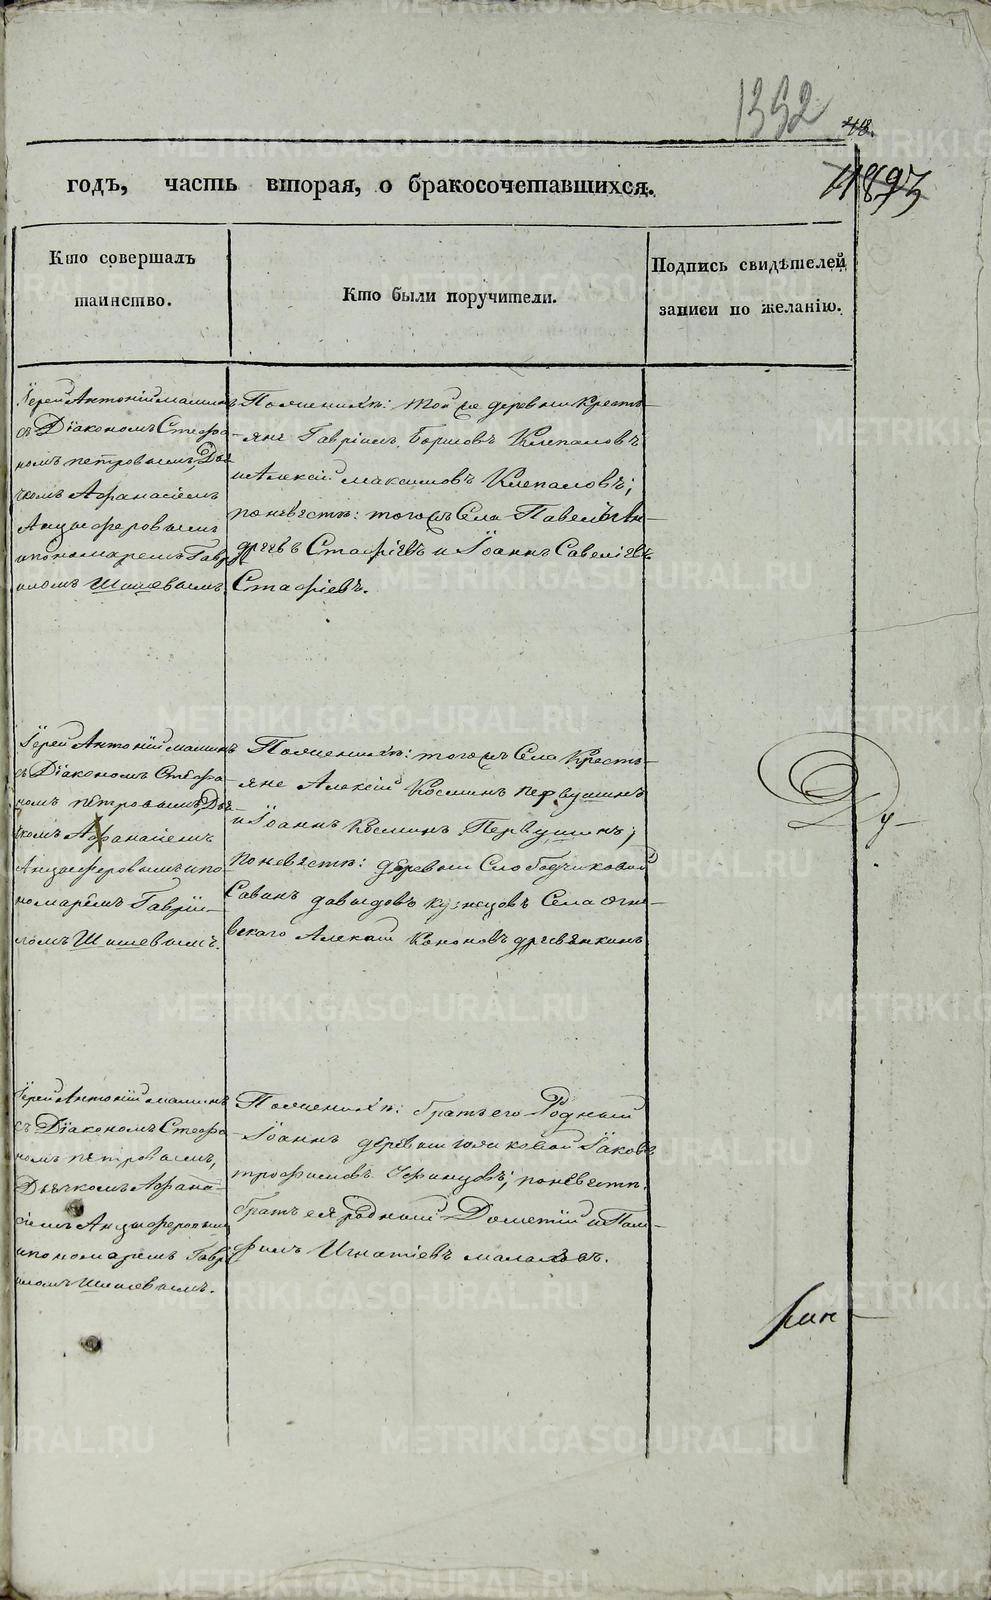 1392
годъ, часть вторая, о бракосочетавшихся.
Кто совершалъ
таинство.
Кто были поручители.
Подпись свидѣтелей
записи по желанію.
Іерей Антоній Малишъ
съ Діакономъ Стефа-
номъ Петровымъ, Дья-
чкомъ Афанасіемъ
Анцыферовымъ
и пономаремъ Гаврі-
иломъ Шишевымъ.
По женихѣ: той же деревни Кресть-
яне Гавріилъ Борисовъ Клепаловъ
и Алексій Максимовъ Клепаловъ;
по невѣстѣ: того жъ Села Павелъ Ан-
дреевъ Стафіевъ и Іоаннъ Савеліевъ
Стафіевъ.
Іерей Антоній Малишъ
съ Діакономъ Стефа-
номъ Петровымъ, Дья-
чкомъ Афанасіемъ
Анцыферовымъ и по-
номаремъ Гавріи-
ломъ Шишевымъ.
По женихѣ: того жъ Села Кресть-
яне Алексій Косминъ Первушинъ
и Іоаннъ Косминъ Первушинъ;
по невѣстѣ: деревни Слободчиковой
Саванъ Давыдовъ Кузнецовъ Села Огне-
вскаго Алексій Кононовъ Древянкинъ
Ду-
Іерей Антоній Малишъ
съ Діакономъ Стефа-
номъ Петровымъ,
Дьячкомъ Афана-
сіемъ Анцыферовымъ
и пономаремъ Гаврі-
иломъ Шишевымъ.
По женихѣ: братъ его Родный
Іоаннъ деревни Іаковъ
Трофимовъ Уфинцовъ; по невѣстѣ:
братъ ея родный Дометій и Пам-
филъ Игнатіевъ